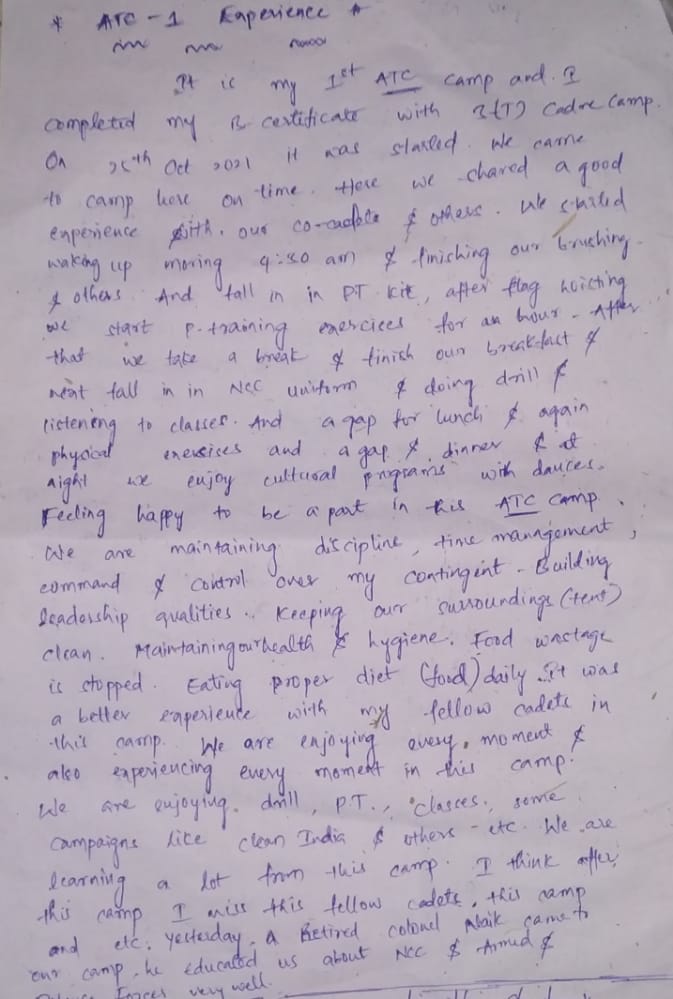 * ATC - 1 Experience *
It is my 1st ATC camp and I
completed my B-certificate with B(T) Cadre Camp.
On 25th Oct 2021 it was started. We came
to camp here on time. Here we shared a good
experience with our co-cadets & others. We started
waking up moring 4:30 am & finishing our brushing
& others. And fall in in PT kit, after flag hoisting
we start P-training exercices for an hour. After
that we take a break & finish our breakfast &
next fall in in NCC uniform & doing drill &
listening to classes. And a gap for lunch & again
physical exercises and a gap & dinner & at
night we enjoy cultural programs with dances.
Feeling happy to be a part in this ATC camp.
We are maintaining discipline, time management,
command & control over my contingent. Building
leadership qualities. Keeping our surroundings (tent)
clean. Maintaining our health & hygiene. Food wastage
is stopped. Eating proper diet (food) daily. It was
a better experience with my fellow cadets in
this camp. We are enjoying every moment &
also experiencing every moment in this camp.
We are enjoying drill, P.T., classes, some
campaigns like clean India & others - etc. We are
learning a lot from this camp. I think after
this camp I miss this fellow cadets, this camp
and etc. Yesterday, a Retired colonel Naik came to
our camp. he educated us about NCC & Armed &
Forces very well.